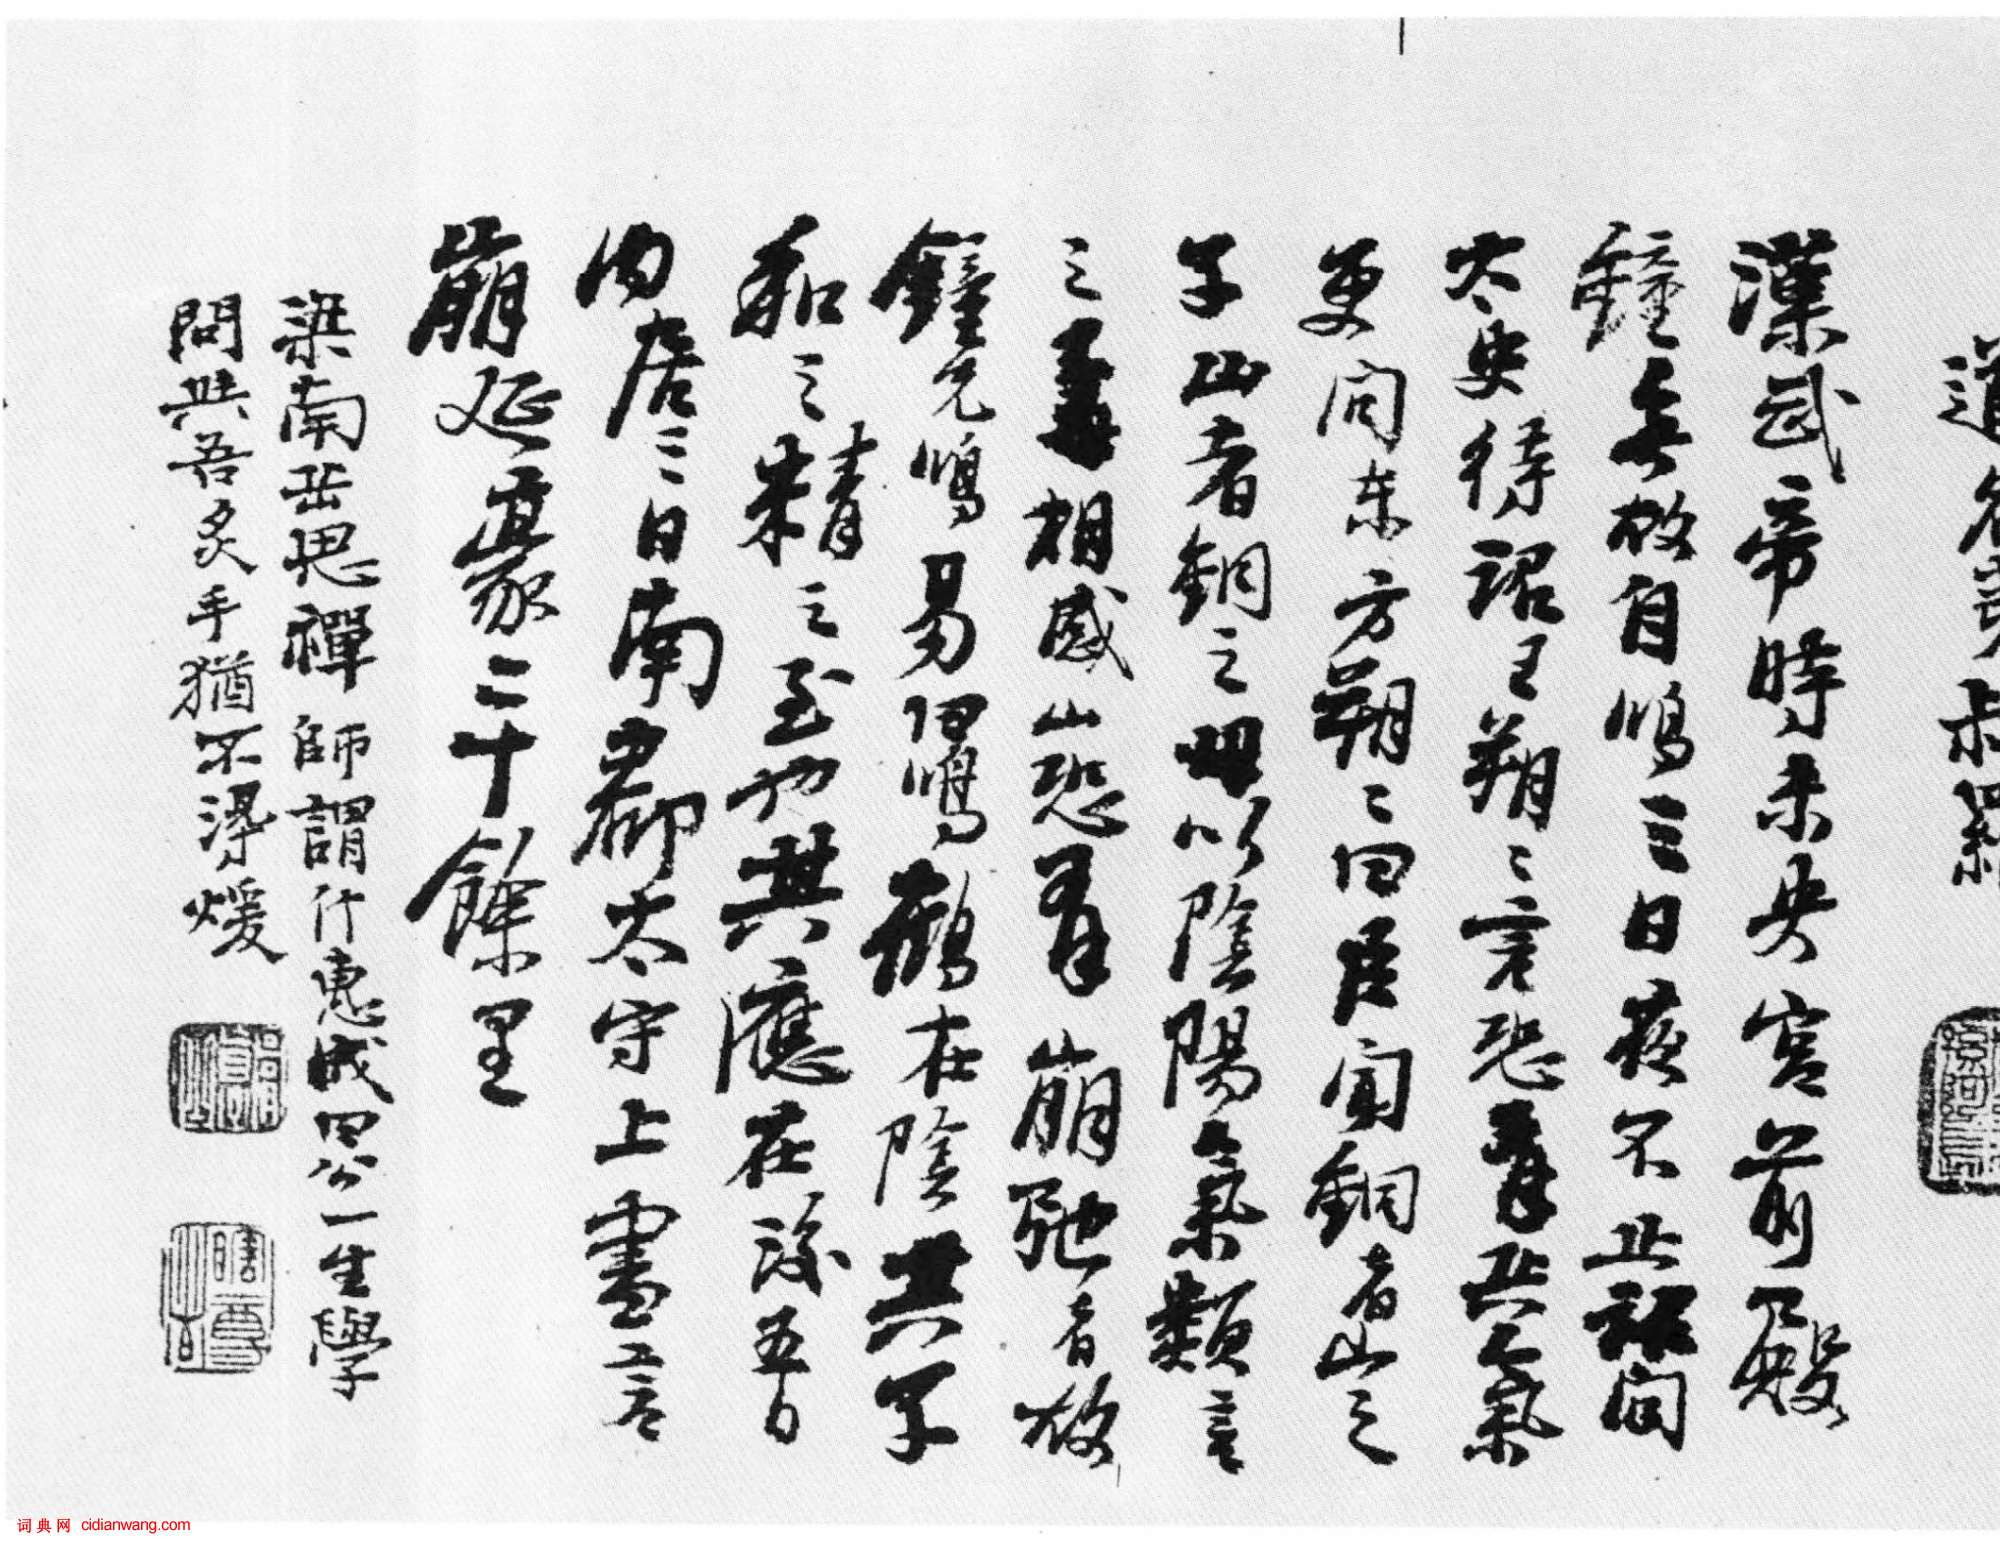 道
漢武帝時未央宮前殿
鐘無故自鳴三日夜不止詔問
太史待詔王朔〻言恐有兵氣
更問東方朔〻曰臣聞銅者山之
子山者銅之母以陰陽氣類言
之子母相感山恐有崩弛者故
鐘先鳴易曰鳴鶴在陰其子
和之精之至也其應在後五日
內居三日南郡太守上書言
崩延袤二十餘里
梁南岳思禪師謂仆惠成曰公一生學
問與吾炙手猶不得煖
词典网 cidianwang.com